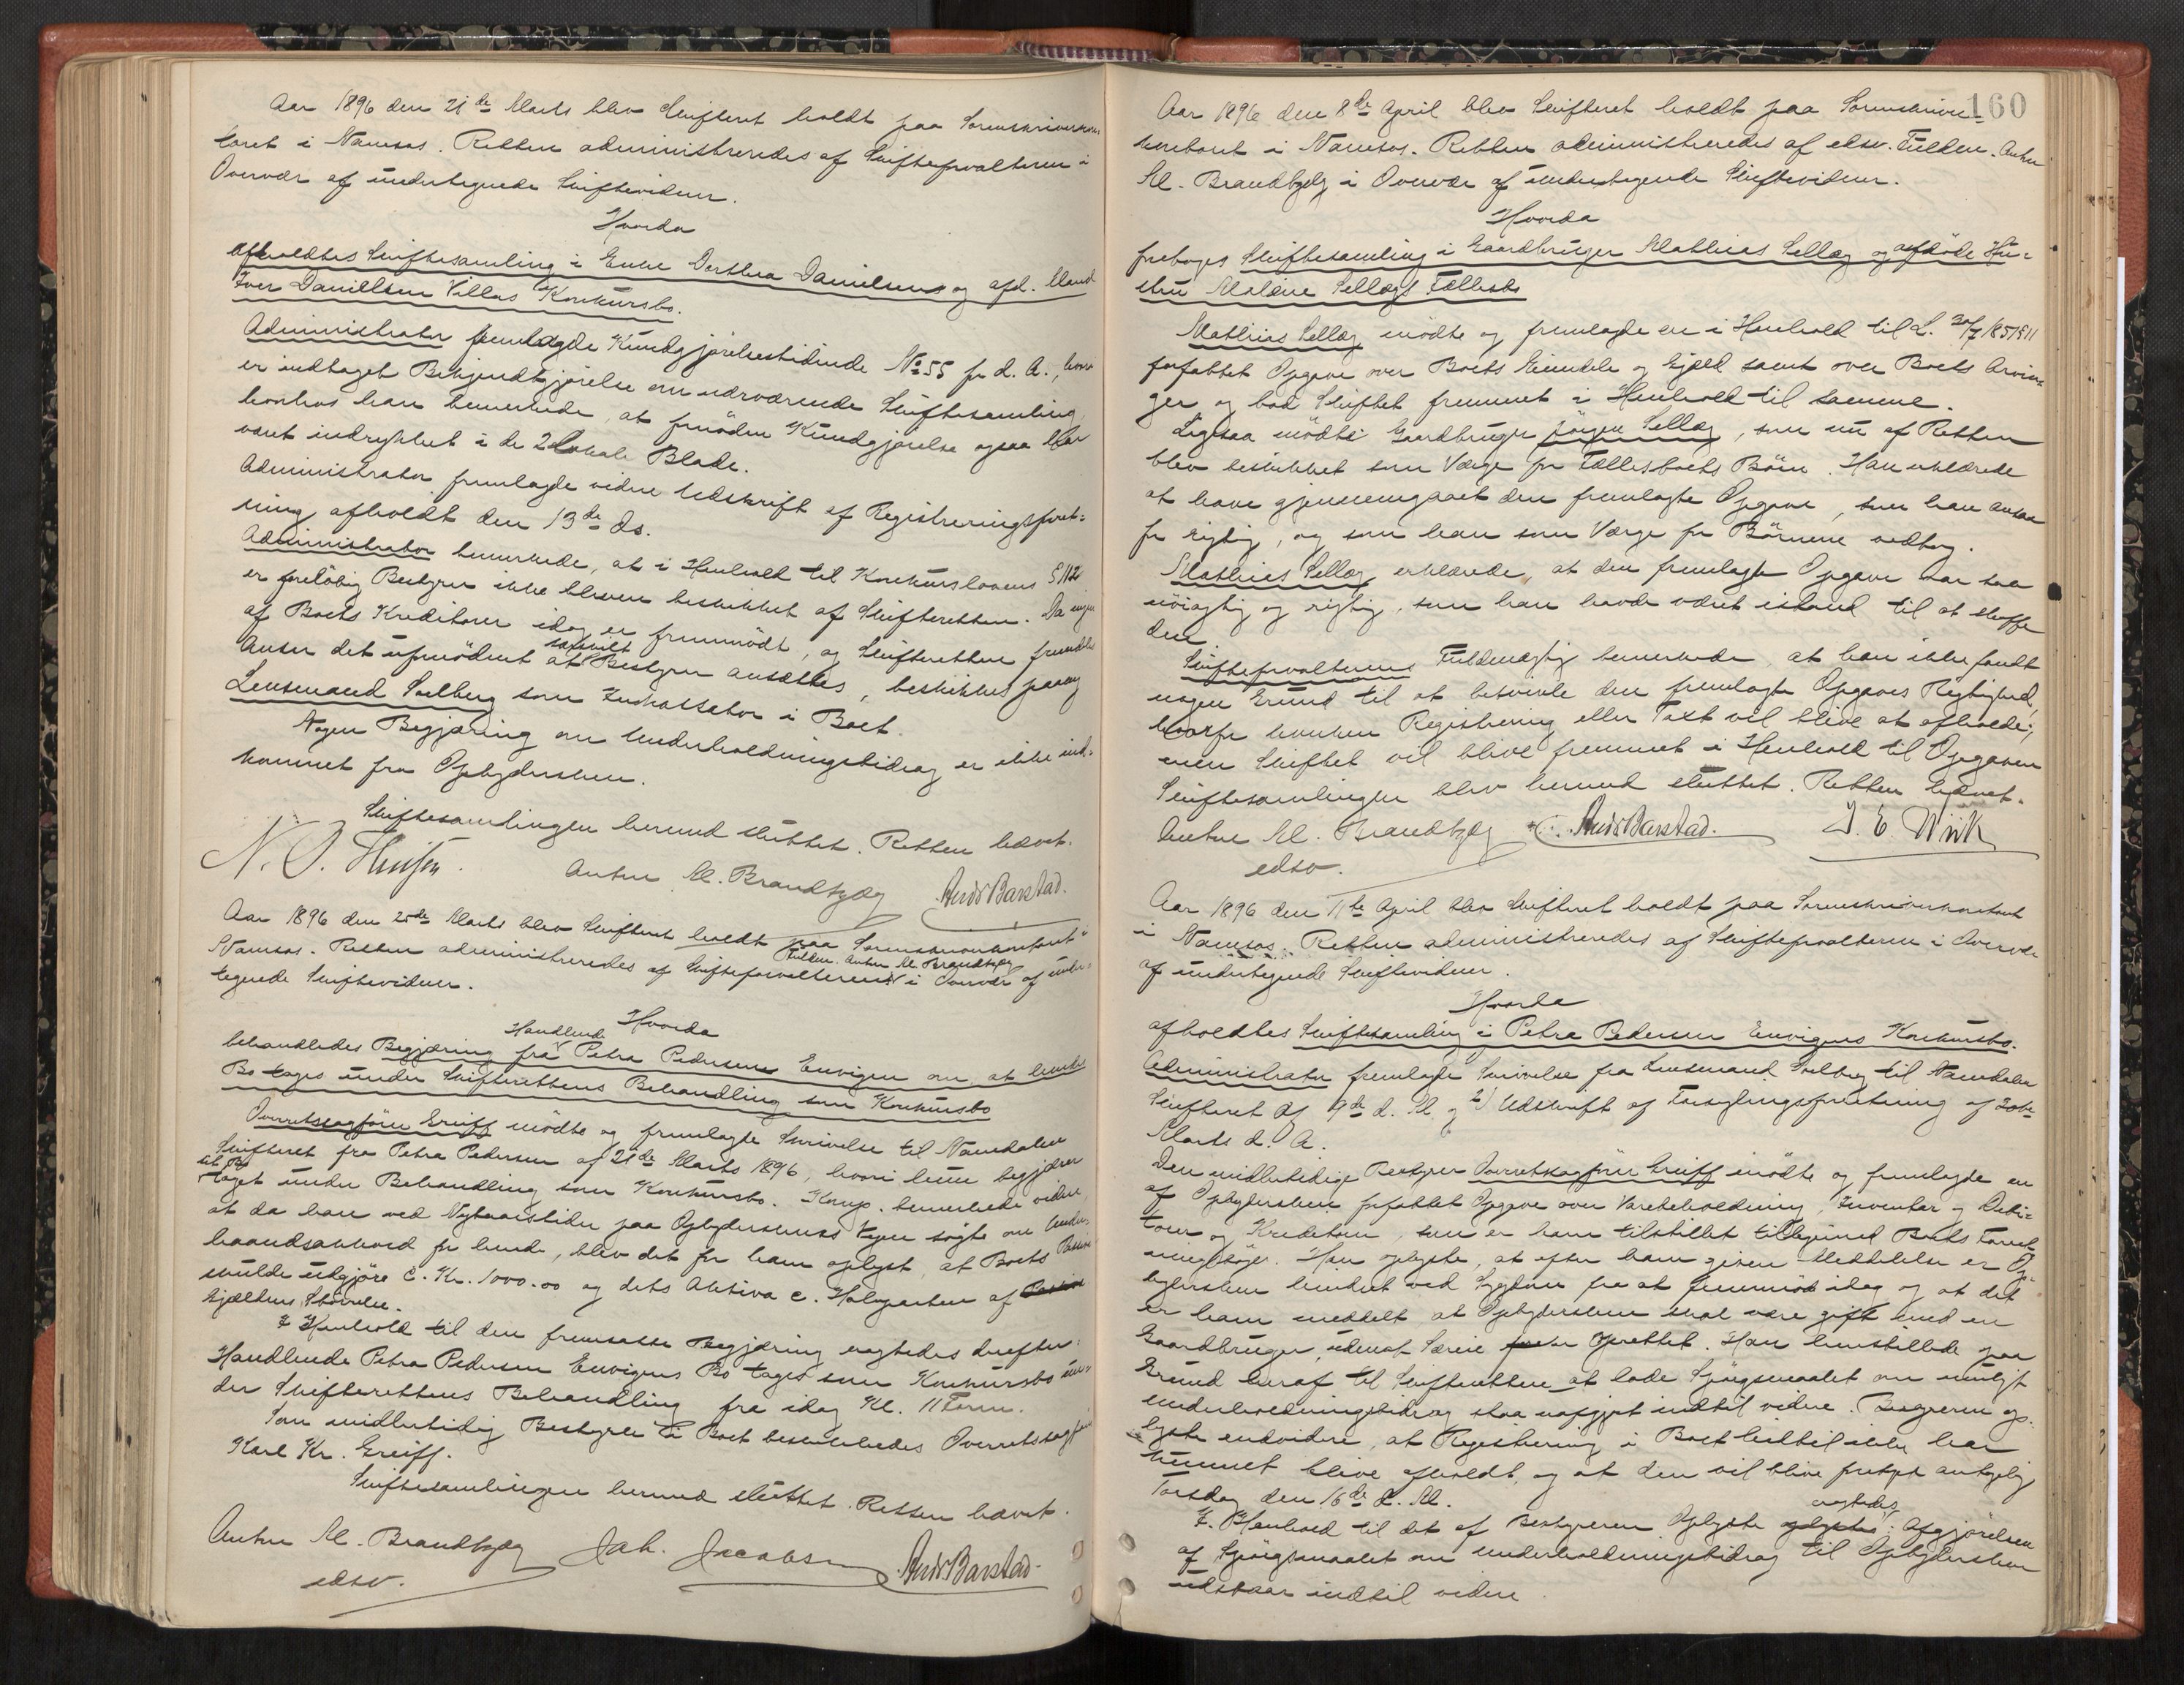 Aar 1896 den 21de Marts blev Skifteret holdt paa Sorenskriverkon-
toret i Namsos. Retten administreredes af Skifteforvalteren i
Overvær af undertegnede Skiftevidner.
Hvorda
afholdtes Skiftesamling i Enke Dorthea Danielsens og afd. Mand
Iver Daniellsen Villas Konkursbo.
Administrator fremlagde Kundgjörelsestidende No 55 for d. A., hvori
er indtaget Bekjendtgjörelse om nærværende Skiftesamling,
hvorhos han bemerkede, at fornöden Kundgjörelse ogsaa har
været indrykket i de 2 lokale Blade.
Administrator fremlagde videre Udskrift af Registreringsforret-
ning afholdt den 13de ds.
Administrator bemerkede, at i Henhold til Konkurslovens § 112
er forelöbig Bestyrer ikke bleven beskikket af Skifteretten. Da ingen
af Boets Kreditorer idag er fremmödt, og Skifteretten fremdeles
anser det ufornödent at særskilt Bestyrer ansættes, beskikkes paany
Lensmand Solberg som Inkassator i Boet.
Nogen Begjæring om Underholdningsbidrag er ikke ind-
kommet fra Opbydersken.
Skiftesamlingen hermed sluttet. Retten hævet.
Anton M. Brandtzæg Andr Barstad.
Aar 1896 den 25de Marts blev Skifteret holdt paa Sorenskriverkontoret i
Namsos. Retten administreredes af Skifteforvalterens Fuldm. Anton M. Brandtzæg i Overvær af under-
tegnede Skiftevidner.
Hvorda
behandledes Begjæring fra Handlende Petra Pedersen Envigen om at hendes
Bo tages under Skifterettens Behandling som Konkursbo
Overretssagförer Greiff mödte og fremlagde Skrivelse til Namdalen
Skifteret fra Petra Pedersen af 21de Marts 1896, hvori hun begjærer
sit Bo taget under Behandling som Konkursbo. Komp. bemerkede videre,
at da han ved Nytaarstider paa Opbyderskens Vegne sögte om Under-
haandsakkord for hende, blev det for ham oplyst, at Boets Passiva
skulde udgjöre c. Kr. 1000.00 og dets Aktiva c. Halvparten af
Gjældens Störrelse.
I Henhold til den fremsatte Begjæring vagtedes derefter:
Handlende Petra Pedersen Envigens Bo tages som Konkursbo un-
der Skifterettens Behandling fra idag Kl. 11 Form.
Som midlertidig Bestyrer i Boet beskikkedes Overretssagförer
Karl Kr. Greiff.
Skiftesamlingen hermed sluttet. Retten hævet.
Anton M. Brandtzæg Joh. Jacobsen Andr Barstad
edsv.
160
Aar 1896 den 8de April blev Skifteret holdt paa Sorenskriver-
kontoret i Namsos. Retten administreredes af edsv. Fuldm. Anton
M. Brandtzæg i Overvær af undertegnede Skiftevidner.
Hvorda
foretoges Skiftesamling i Gaardbruger Mathias Sellæg og afdöde Hu-
stru Malene Sellægs Fællesbo
Mathias Sellæg mödte og fremlagde en i Henhold til L. 30/7 1851 § 11
forfattet Opgave over Boets Eiendele og Gjæld samt over Boets Arvin-
ger og bad Skiftet fremmet i Henhold til samme.
Ligesaa mödte Gaardbruger Jörgen Sellæg, som nu af Retten
blev beskikket som Værge for Fællesboets Börn. Han erklærede
at have gjennemgaaet den fremlagte Opgave, som han ansaa
for rigtig, og som han som Værge for Börnene vedtog.
Mathias Sellæg erklærede, at den fremlagte Opgave var saa
nöiagtig og rigtig, som han havde været istand til at skaffe
den.
Skifteforvalterens Fuldmægtig bemerkede, at han ikke fandt
nogen Grund til at betvivle den fremlagte Opgaves Rigtighed,
hvorfor hverken Registrering eller Taxt vil blive at afholde;
men Skiftet vil blive fremmet i Henhold til Opgaven
Skiftesamlingen blev hermed sluttet. Retten hævet.
Anton M. Brandtzæg Andr Barstad. I. E. Wiik
edsv.
Aar 1896 den 11te April blev Skifteret holdt paa Sorenskriverkontoret
i Namsos. Retten administreredes af Skifteforvalteren i Overvær
af undertegnede Skiftevidner.
Hvorda
afholdtes Skiftesamling i Petra Pedersen Envigens Konkursbo.
Administrator fremlagde Skrivelse fra Lensmand Solberg til Namdalen
Skifteret af 9de d. M. og 2) Udskrift af Forseglingsforretning af 30te
Marts d. A.
Den midlertidige Bestyrer Overretssagförer Greiff mödte og fremlagde en
af Opbydersken forfattet Opgave over Varebeholdning, Inventar og Debi-
torer og Kreditorer, som er ham tilstillet tilligemed Boets
Han oplyste, at efter ham given Meddelelse er Op-
bydersken hindret ved Sygdom fra at fremmöde idag og at det
er ham meddelt, at Opbydersken skal være gift med en
Gaardbruger, uden at Særeie er oprettet. Han henstillede paa
Grund heraf til Skifteretten at lade Spörgsmaalet om muligt
Underholdningsbidrag staa uafgjort indtil videre. Bestyreren op-
lyste endvidere, at Registrering i Boet hidtil ikke har
kunnet blive afholdt, og at den vil blive foretaget antagelig
Torsdag den 16de d. M.
I Henhold til det af Bestyreren Oplyste vagtedes: Afgjörelsen
af Spörgsmaalet om Underholdningsbidrag til Opbydersken
udstaar indtil videre.